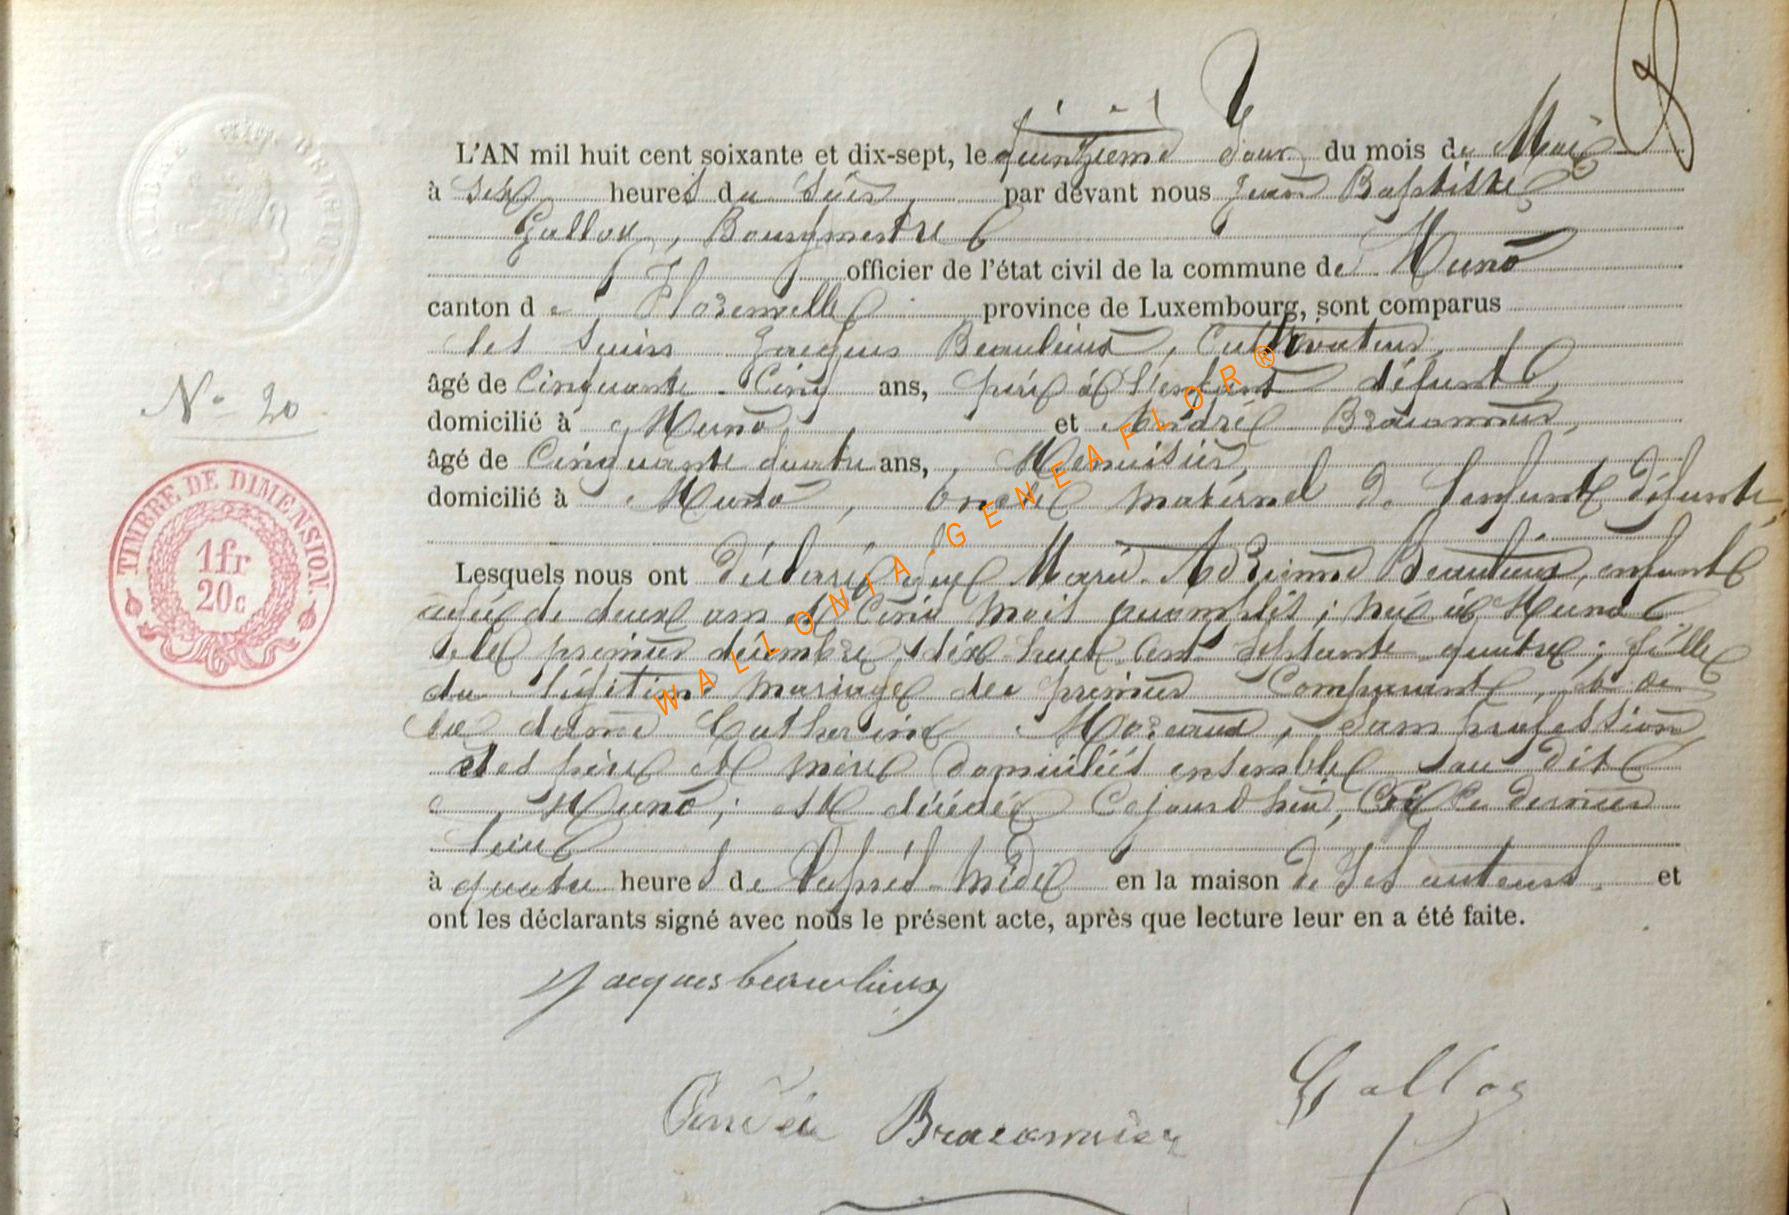 L'AN mil huit cent soixante et dix-sept, le quinzième Jour du mois de Mai
à six heures du Soir, par devant nous Jean Baptiste
Galloy, Bourgmestre
officier de l'état civil de la commune de Muno
canton de Florenville province de Luxembourg, sont comparus
les Jacques Beaulieux, Cultivateur,
âgé de Cinquante-Cinq ans, père à l'enfant défunte,
domicilié à Muno et André Braconnier,
âgé de Cinquante quatre ans, Menuisier,
domicilié à Muno, oncle maternel de l'enfante défunte,
Lesquels nous ont déclaré que Marie-Adrienne Beaulieux, enfante
agée de deux ans et Cinq mois accomplis; née à Muno
le premier décembre, dix-huit cent septante quatre; fille
du légitime mariage du premier Comparant, et de
la dame Catherine Moreaux, sans profession
père et mère domiciliés ensemble au dit
Muno; est décédée Cejourd'hui, en Ce dernier
lieu
à quatre heures de l'après-midi en la maison de ses auteurs. et
ont les déclarants signé avec nous le présent acte, après que lecture leur en a été faite.
N° 20
TIMBRE DE DIMENSION
1fr
20c
WALLONIA-GENEAFLOR®
Jacques beaulieux
Galloy
André Braconnier